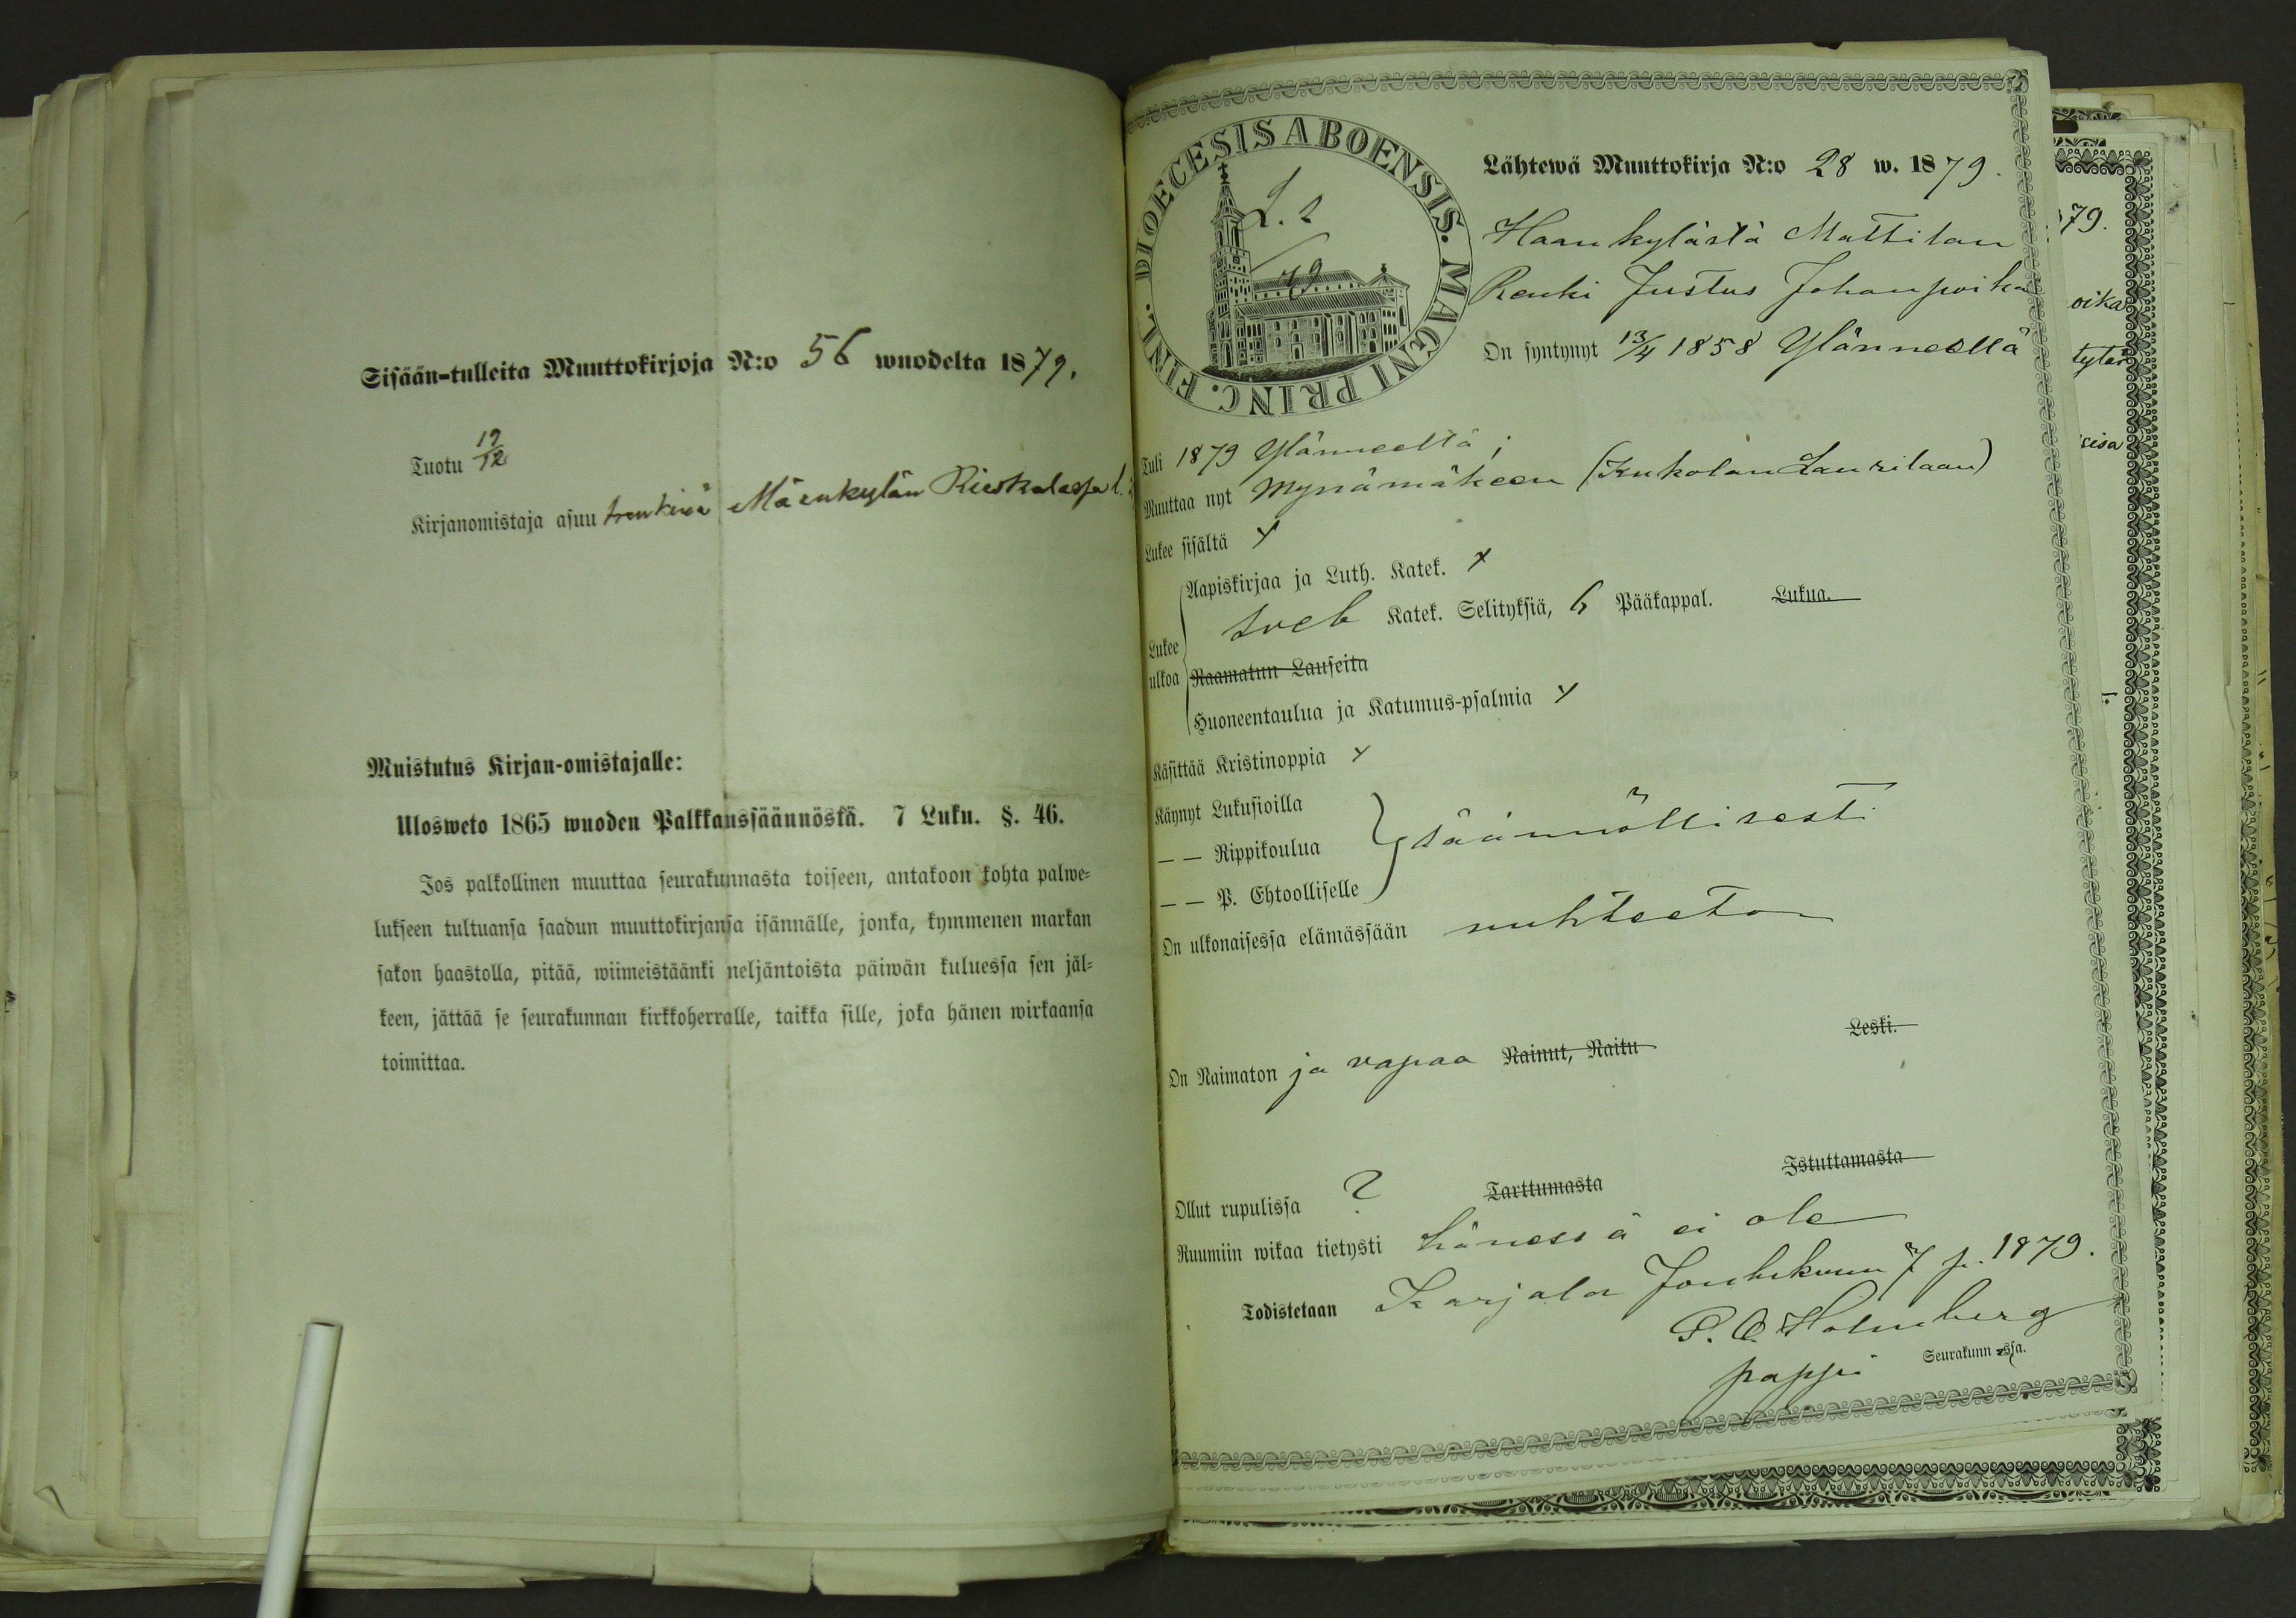 Sisään-tulleita Muuttokirjoja N:o 56 wuodelta 1879.
Tuotu 19/12
Kirjanomistaja asuu trenkinä Mäenkylän Rieskalassa
Muistutus Kirjan-omistajalle:
Ulosweto 1865 wuoden Palkkaussäännöstä. 7 Luku. §. 46.
Jos palkollinen muuttaa seurakunnasta toiseen, antakoon kohta palwe-
lukseen tultuansa saadun muuttokirjansa isännälle, jonka, kymmenen markan
sakon haastolla, pitää, wiimeistäänki neljäntoista päiwän kuluessa sen jäl-
keen, jättää se seurakunnan kirkkoherralle, taikka sille, joka hänen wirkaansa
toimittaa.
DIOECESIS ABOENSIS. MAGNI PRINC. FINL.
Lähtewä Muuttokirja N:o 28 w. 1879.
Haankylästä Mattilan
Renki Justus Johanpoika
On syntynyt 13/4 1858 Ylänneellä
Tuli 1879 Ylänneeltä;
Muuttaa nyt Mynämäkeen (Kukolan Laurilaan)
Lukee sisältä x
Lukee ulkoa
Aapiskirjaa ja Luth. Katek. x
Sveb Katek. Selityksiä, 6 Pääkappal. Lukua.
Raamatun Lauseita
Huoneentaulua ja Katumus-psalmia x
Käsittää Kristinoppia x
Käynyt Lukusioilla
— — Rippikoulua säännöllisesti
— — P. Ehtoolliselle
On ulkonaisessa elämässään nuhteeton
On Naimaton ja vapaa Nainut, Naitu Leski.
Ollut rupulissa ? Tarttumasta Istuttamasta
Ruumiin wikaa tietysti hänessä ei ole
Todistetaan Karjala Joulukuun 7 p. 1879.
Holmberg
pappi Seurakunnassa.
79.
oika
tytär